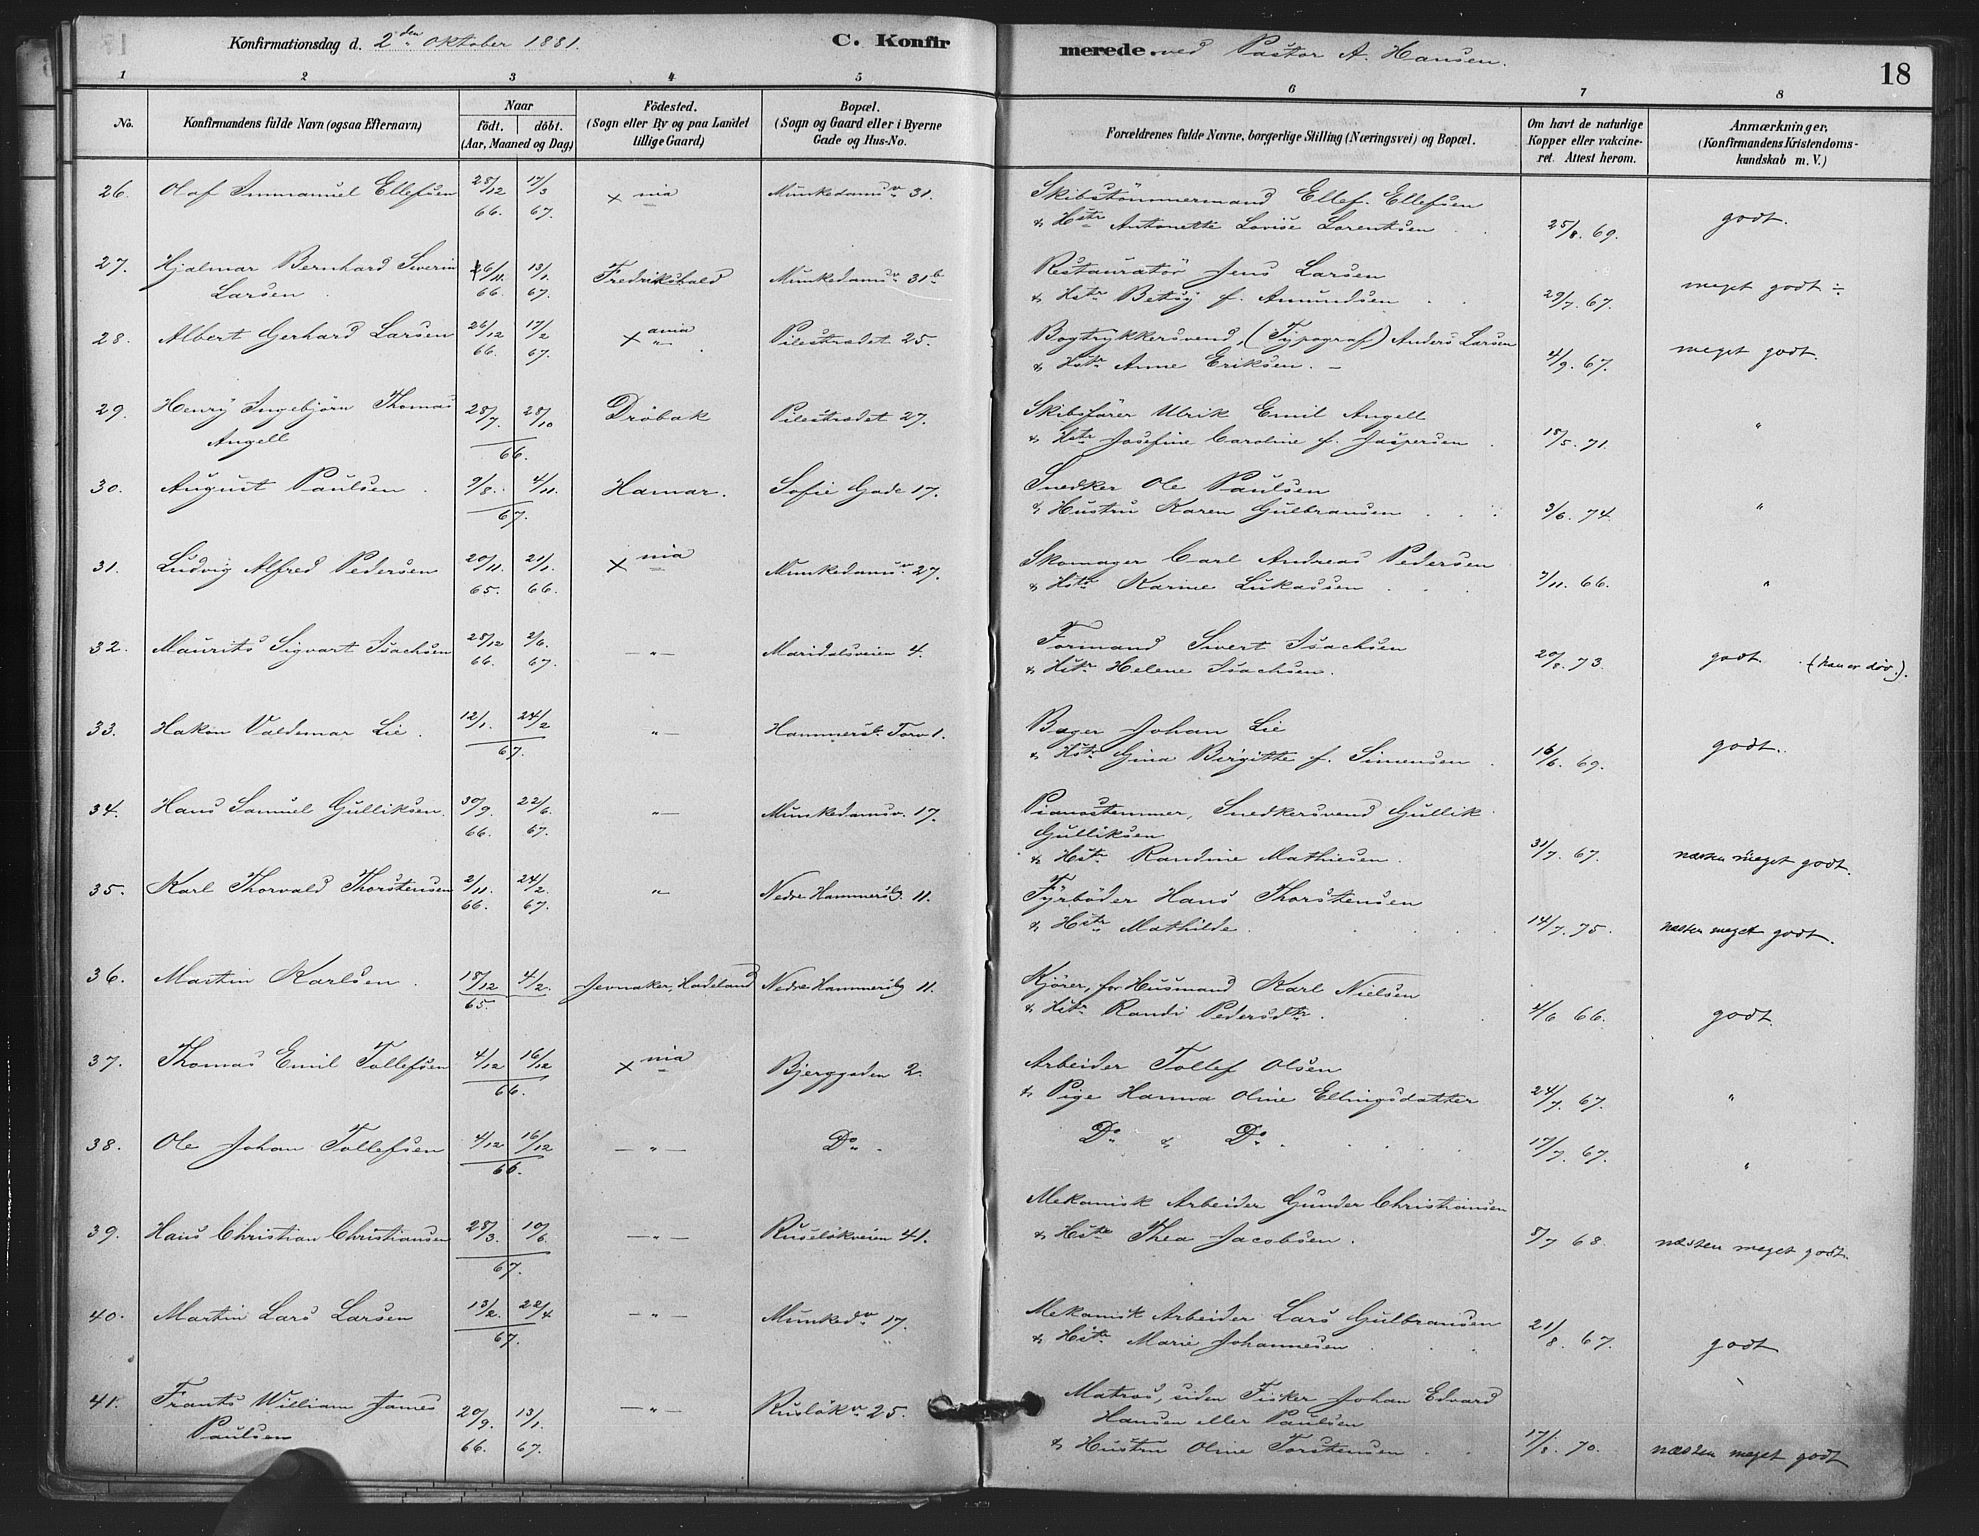 Konfirmationsdag d. 2den Oktober 1881. C. Konfirmerede. ved Pastor A. Hansen. 18
1 2 3 4 5 6 7 8
No. Konfirmandens fulde Navn (ogsaa Efternavn) Naar födt. döbt. (Aar, Maaned og Dag) Födested. (Sogn eller By og paa Landet tillige Gaard) Bopæl. (Sogn og Gaard eller i Byerne Gade og Hus-No. Forældrenes fulde Navne, borgerlige Stilling (Næringsvei) og Bopæl. Om havt de naturlige Kopper eller vakcineret. Attest herom. Anmærkninger, (Konfirmandens Kristendomskundskab m. V.)
26. Olaf Immanuel Ellefsen 28/12 66. 17/3 67. Xnia Munkedamsv. 31. Skibstömmermand Ellef Ellefsen
& Hstr Antonette Lovise Lorentsen 25/8. 69. godt.
27. Hjalmar Bernhard Severin Larsen 26/11 66. 13/1. 67. Fredrikshald Munkedamsv 31b Restauratör Jens Larsen
& Hstr Betsy f. Amundsen 29/7. 67. meget godt ÷
28. Albert Gerhard Larsen 26/12 66. 17/2 67. Xania Pilestrædet 25. Bogtrykkersvend, (Typograf) Anders Larsen
& Hstr Anne Eriksen. 4/9. 67. meget godt.
29. Henry Ingebjörn Thomas Angell 28/7. 28/10 66. Dröbak Pilestrædet 27. Skibsförer Ulrik Emil Angell
& Hstr Josefine Caroline f. Jaspersen 18/5. 71. "
30. August Paulsen. 9/8. 4/11. 67. Hamar. Sofie Gade 17. Snedker Ole Paulsen
& Hustru Karen Gulbransen 3/6. 74. "
31. Ludvig Alfred Pedersen 20/11. 65. 21/1. 66. Xnia Munkedamsv 27. Skomager Carl Andreas Pedersen
& Hstr Karine Lukassen 7/11. 66. "
32. Maurits Sigvart Isachsen 28/12 66. 2/6. 67. — " — Maridalsveien 4. Formand Sivert Isachsen
& Hstr Helene Isachsen. 20/8. 73. godt. (han er döv.).
33. Hakon Valdemar Lie. 12/1. 24/2 67. " — Hammersb. Torv 1. Bager Johan Lie
& Hstr Gina Birgitte f. Simensen 16/6. 69. godt.
34. Hans Samuel Gulliksen. 30/9. 66. 22/6. 67. " — Munkedamsv. 17. Pianostemmer, Snedkersvend Gullik Gulliksen
& Hstr Randine Mathiesen. 31/7. 67. næsten meget godt.
35. Karl Thorvald Thorstensen 2/11. 66. 24/2. 67. " Nedre Hammersbg 11. Fyrböder Hans Thorstensen
& Hstr Mathilde. 14/7. 75. næsten meget godt.
36. Martin Karlsen. 18/12 4/2. 65. Jevnaker, Hadeland Nedre Hammersbg 11. Kjörer, för Husmand Karl Nielsen
& Hstr Randi Pedersdtr. 4/6 66. godt.
37. Thomas Emil Tollefsen 4/12 16/12 66. Xnia Bjerggaden 2. Arbeider Tollef Olsen
& Pige Hanna Oline Ellingsdatter 24/7. 67. "
38. Ole Johan Tollefsen 4/12 16/12 66. — " — Do. Do & Do. 17/7. 67. "
39. Hans Christian Christiansen 28/3. 10/6. 67. — " — Ruselökveien 41. Mekanisk Arbeider Gunder Christiansen
& Hstr Thea Jacobsen. 8/7 68 næsten meget godt.
40. Martin Lars Larsen 13/2. 22/4 67. — " — Munkedv 17. Mekanisk Arbeider Lars Gulbransen
& Hstr Marie Johannesen 21/8. 67. godt
41. Frants William James Paulsen 20/9. 66. 13/1. 67. — " — Ruslökv 25. Matros, siden Fisker Johan Edvard
Hansen eller Paulsen
& Hustru Oline Torstensen 17/8. 70. næsten meget godt